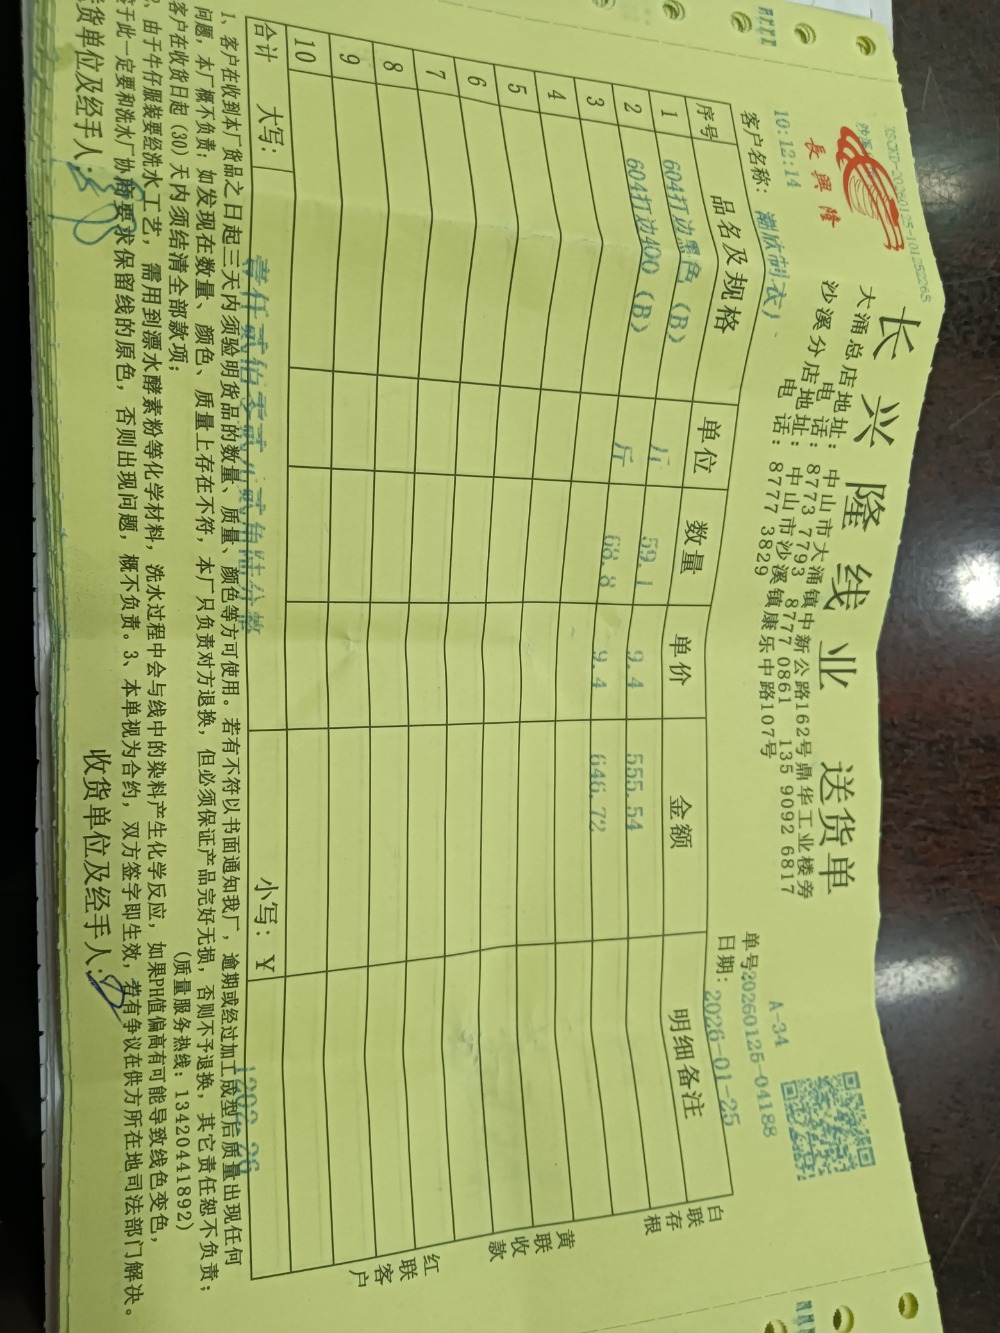 長興隆
10:12:14
长兴隆线业 送货单
大涌总店地址: 中山市大涌镇中新公路162号鼎华工业楼旁
电 话: 8773 7793 8777 0861 135 9092 6817
沙溪分店地址: 中山市沙溪镇康乐中路107号
电 话: 8777 3829
A-34
单号20260125-04188
客户名称: 潮欣制衣)
日期: 2026-01-25
序号 品名及规格 单位 数量 单价 金额 明细备注
1 604打边黑色 (B) 斤 59.1 9.4 555.54
2 604打边400 (B) 斤 68.8 9.4 646.72
3
4
5
6
7
8
9
10
合计 大写: 壹仟贰佰零贰元贰角陆分整 小写: ¥ 1202.26
白联存根
黄联收款
红联客户
1、客户在收到本厂货品之日起三天内须验明货品的数量、质量、颜色等方可使用。若有不符以书面通知我厂, 逾期或经过加工成型后质量出现任何
问题, 本厂概不负责; 如发现在数量、颜色、质量上存在不符, 本厂只负责对方退换, 但必须保证产品完好无损, 否则不予退换, 其它责任恕不负责;
客户在收货日起 (30) 天内须结清全部款项; (质量服务热线: 13420441892)
2、由于牛仔服装要经洗水工艺, 需用到漂水酵素粉等化学材料, 洗水过程中会与线中的染料产生化学反应, 如果PH值偏高有可能导致线色变色,
于此一定要和洗水厂协商要求保留线的原色, 否则出现问题, 概不负责。3、本单视为合约, 双方签字即生效, 若有争议在供方所在地司法部门解决。
货单位及经手人: 收货单位及经手人: